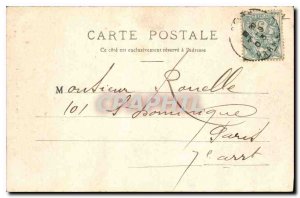 CARTE POSTALE
Ce côté est exclusivement réservé à l'adresse
Monsieur Rouelle
101 St Dominique
Paris
7e arrt